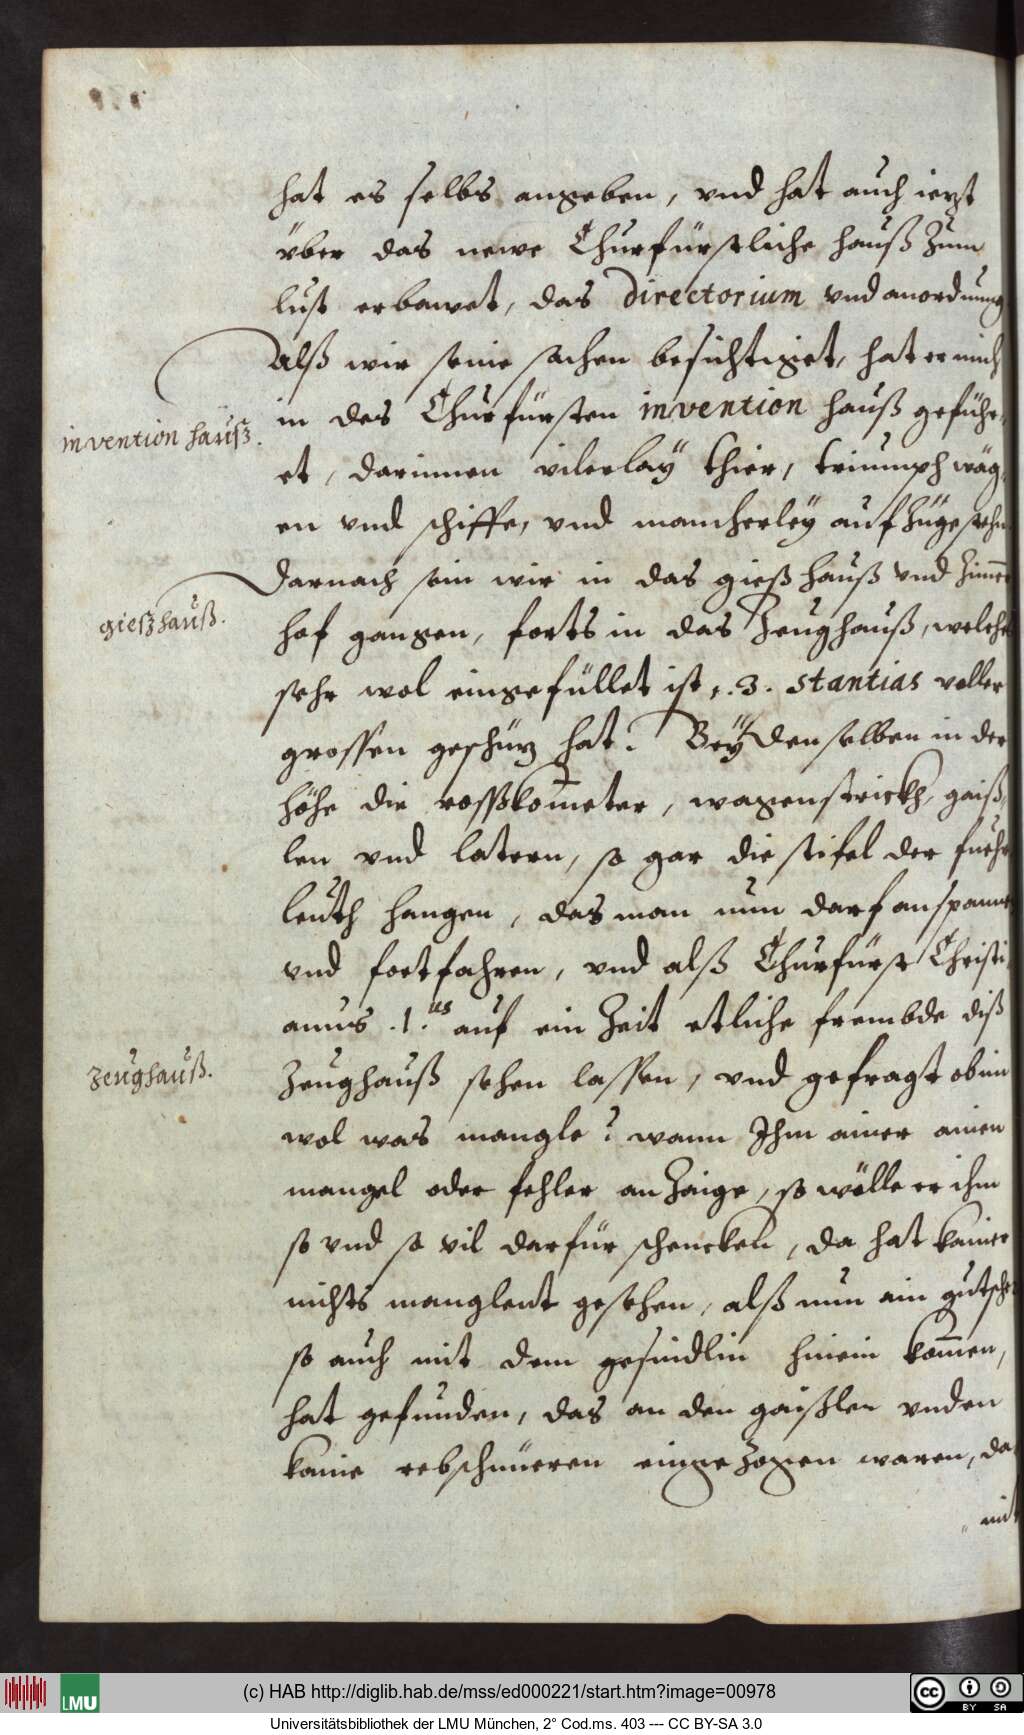 hat es selbs angeben, vnd hat auch iezt
über das newe Churfürstliche hauß zum
lust erbawet, das directorium vnd anordnung
Alß wir seine sachen besichtiget, hat er mich
invention hauß.
in des Churfürsten invention hauß geführ-
et, darinnen vilerlaÿ thier, triumph wäg-
en vnd schiffe, vnd mancherleÿ aufzüg gesehen
Darnach sein wir in das gießhauß vnd Zimmer
gießhauß.
hof gangen, forts in das Zeughauß, welches
sehr wol eingefüllet ist, .3. stantias voller
grossen geschüz hat. Beÿ denselben in der
höhe die rosßkom̄eter, wagenstrickh, gaiß-
len vnd latern, so gar die stifel der fuehr
leüth hangen, das man nun darf anspannen
vnd fortfahren, vnd alß Churfürst Christi-
anus .1.us auf ein Zeit etliche frembde diß
Zeughauß.
Zeughauß sehen lassen, vnd gefragt ob im
wol was mangle? wann Ihm ainer ainen
mangel oder fehler anzaige, so wölle er ihm
so vnd so vil darfür schencken, da hat kainer
nichts manglent gesehen, alß nun ein gutscher
so auch mit dem gesindlin hinein kom̄en,
hat gefunden, das an den gaißlen vnden
kaine rebschnüeren eingezogen waren, da-
mit
(c) HAB http://diglib.hab.de/mss/ed000221/start.htm?image=00978
LMU
cc BY SA
Universitätsbibliothek der LMU München, 2° Cod.ms. 403 --- CC BY-SA 3.0